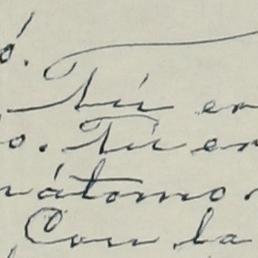 ó.
Tú en
o. Tú en
nátomo
Com la